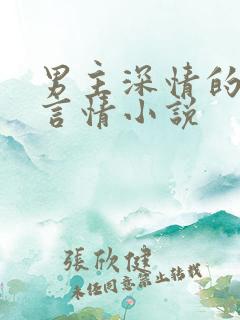 男主深情的
言情小说
張欣健
未经同意禁止转载